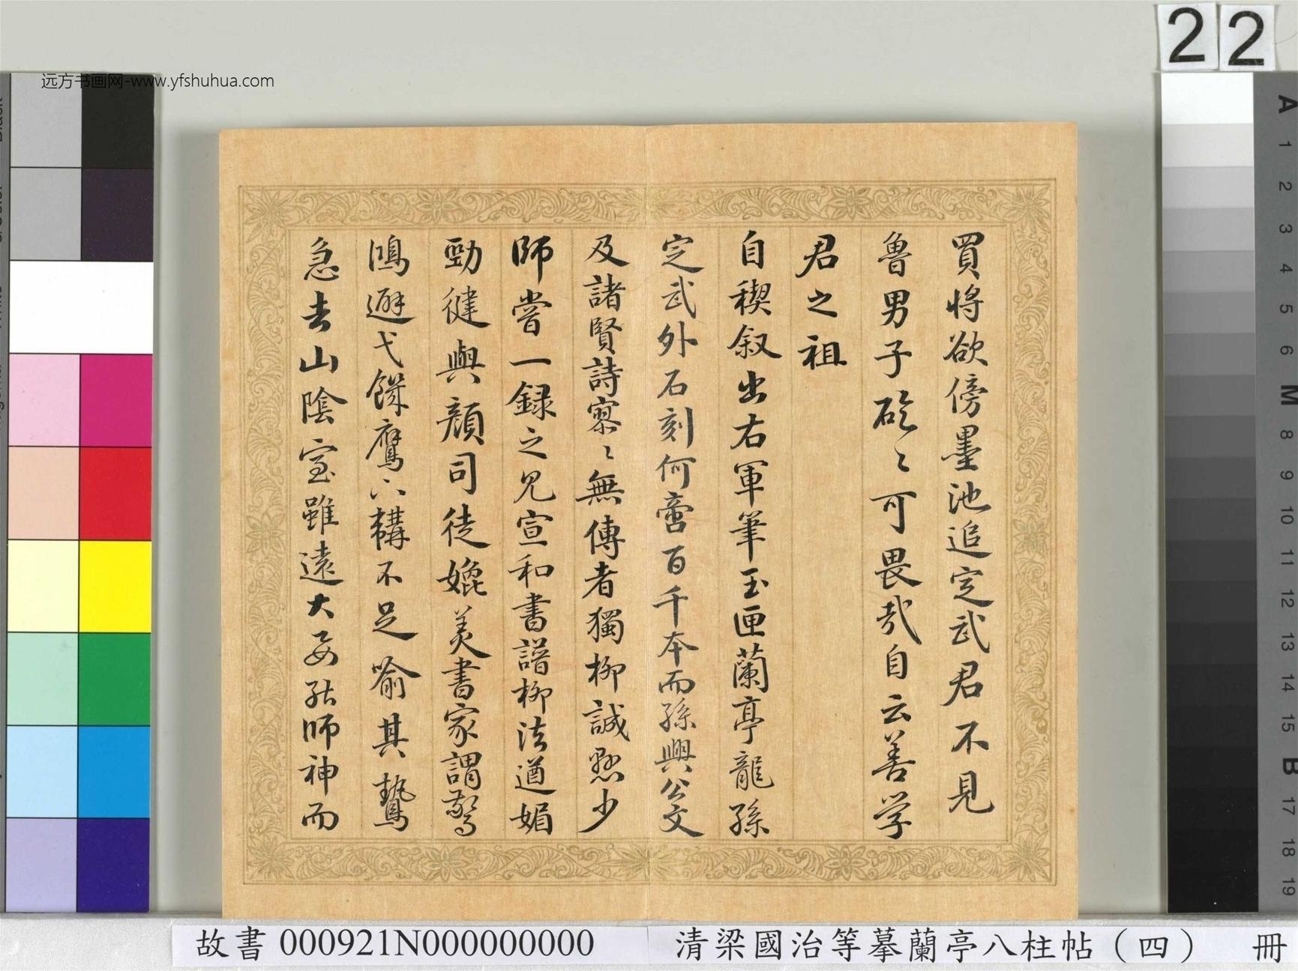 22
远方书画网-www.yfshuhua.com
買将欲傍墨池追定武君不見
魯男子硁〻可畏哉自云善学
君之祖
自稧叙出右軍筆玉匣蘭亭龍孫
定武外石刻何啻百千本而孫興公文
及諸賢詩寥〻無傳者獨柳誠懸少
師嘗一録之見宣和書譜柳法遒媚
勁健與顔司徒媲美書家謂驚
鴻避弋饑鷹下韝不足喻其鷙
急去山陰室雖遠大要能師神而
A
1
2
3
4
5
6
M
8
9
10
11
12
13
14
15
B
17
18
19
故書 000921N000000000 清梁國治等摹蘭亭八柱帖（四） 冊